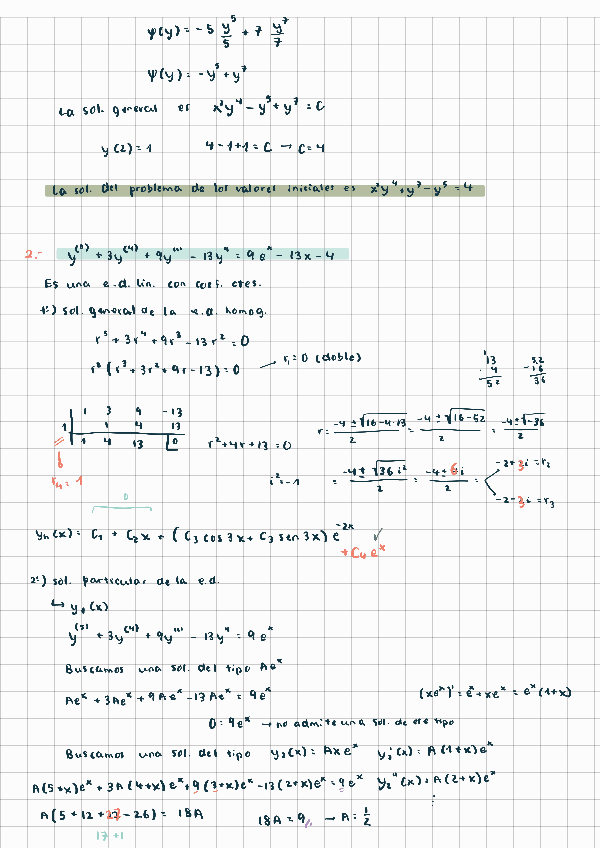 ψ(y) = -5 y⁵/5 + 7 y⁷/7
ψ(y) = -y⁵ + y⁷
La sol. general es x²y⁴ - y⁵ + y⁷ = C
y(2) = 1 4 - 1 + 1 = C → C = 4
La sol. del problema de los valores iniciales es x²y⁴ + y⁷ - y⁵ = 4
2.- y⁽⁵⁾ + 3y⁽⁴⁾ + 9y''' - 13y'' = 9eˣ - 13x - 4
Es una e.d. lin. con coefi. ctes.
1º) sol. general de la e.d. homog.
r⁵ + 3r⁴ + 9r³ - 13r² = 0
r²(r³ + 3r² + 9r - 13) = 0 r₁ = 0 (doble)
13 · 4 = 52
52 - 16 = 36
1 3 9 -13
1 1 4 13
1 4 13 0
r² + 4r + 13 = 0 r = (-4 ± √(16 - 4·13))/2 = (-4 ± √(16 - 52))/2 = (-4 ± √-36)/2
r₄ = 1
i² = -1 = (-4 ± √(36 i²))/2 = (-4 ± 6i)/2 = -2 + 3i = r₂
-2 - 3i = r₃
0
yₕ(x) = C₁ + C₂x + (C₃ cos 3x + C₃ sen 3x) e⁻²ˣ ✓
+ C₄eˣ
2º) sol. particular de la e.d.
↳ yₚ(x)
y⁽⁵⁾ + 3y⁽⁴⁾ + 9y''' - 13y'' = 9eˣ
Buscamos una sol. del tipo Aeˣ
Aeˣ + 3Aeˣ + 9Aeˣ - 13Aeˣ = 9eˣ (xeˣ)' = eˣ + xeˣ = eˣ(1+x)
0 = 9eˣ → no admite una sol. de ese tipo
Buscamos una sol. del tipo y₂(x) = Axeˣ y₂'(x) = A(1+x)eˣ
A(5+x)eˣ + 3A(4+x)eˣ + 9(3+x)eˣ - 13(2+x)eˣ = 9eˣ y₂''(x) = A(2+x)eˣ
⋮
A(5 + 12 + 27 - 26) = 18A 18A = 9 → A = 1/2
17 + 1